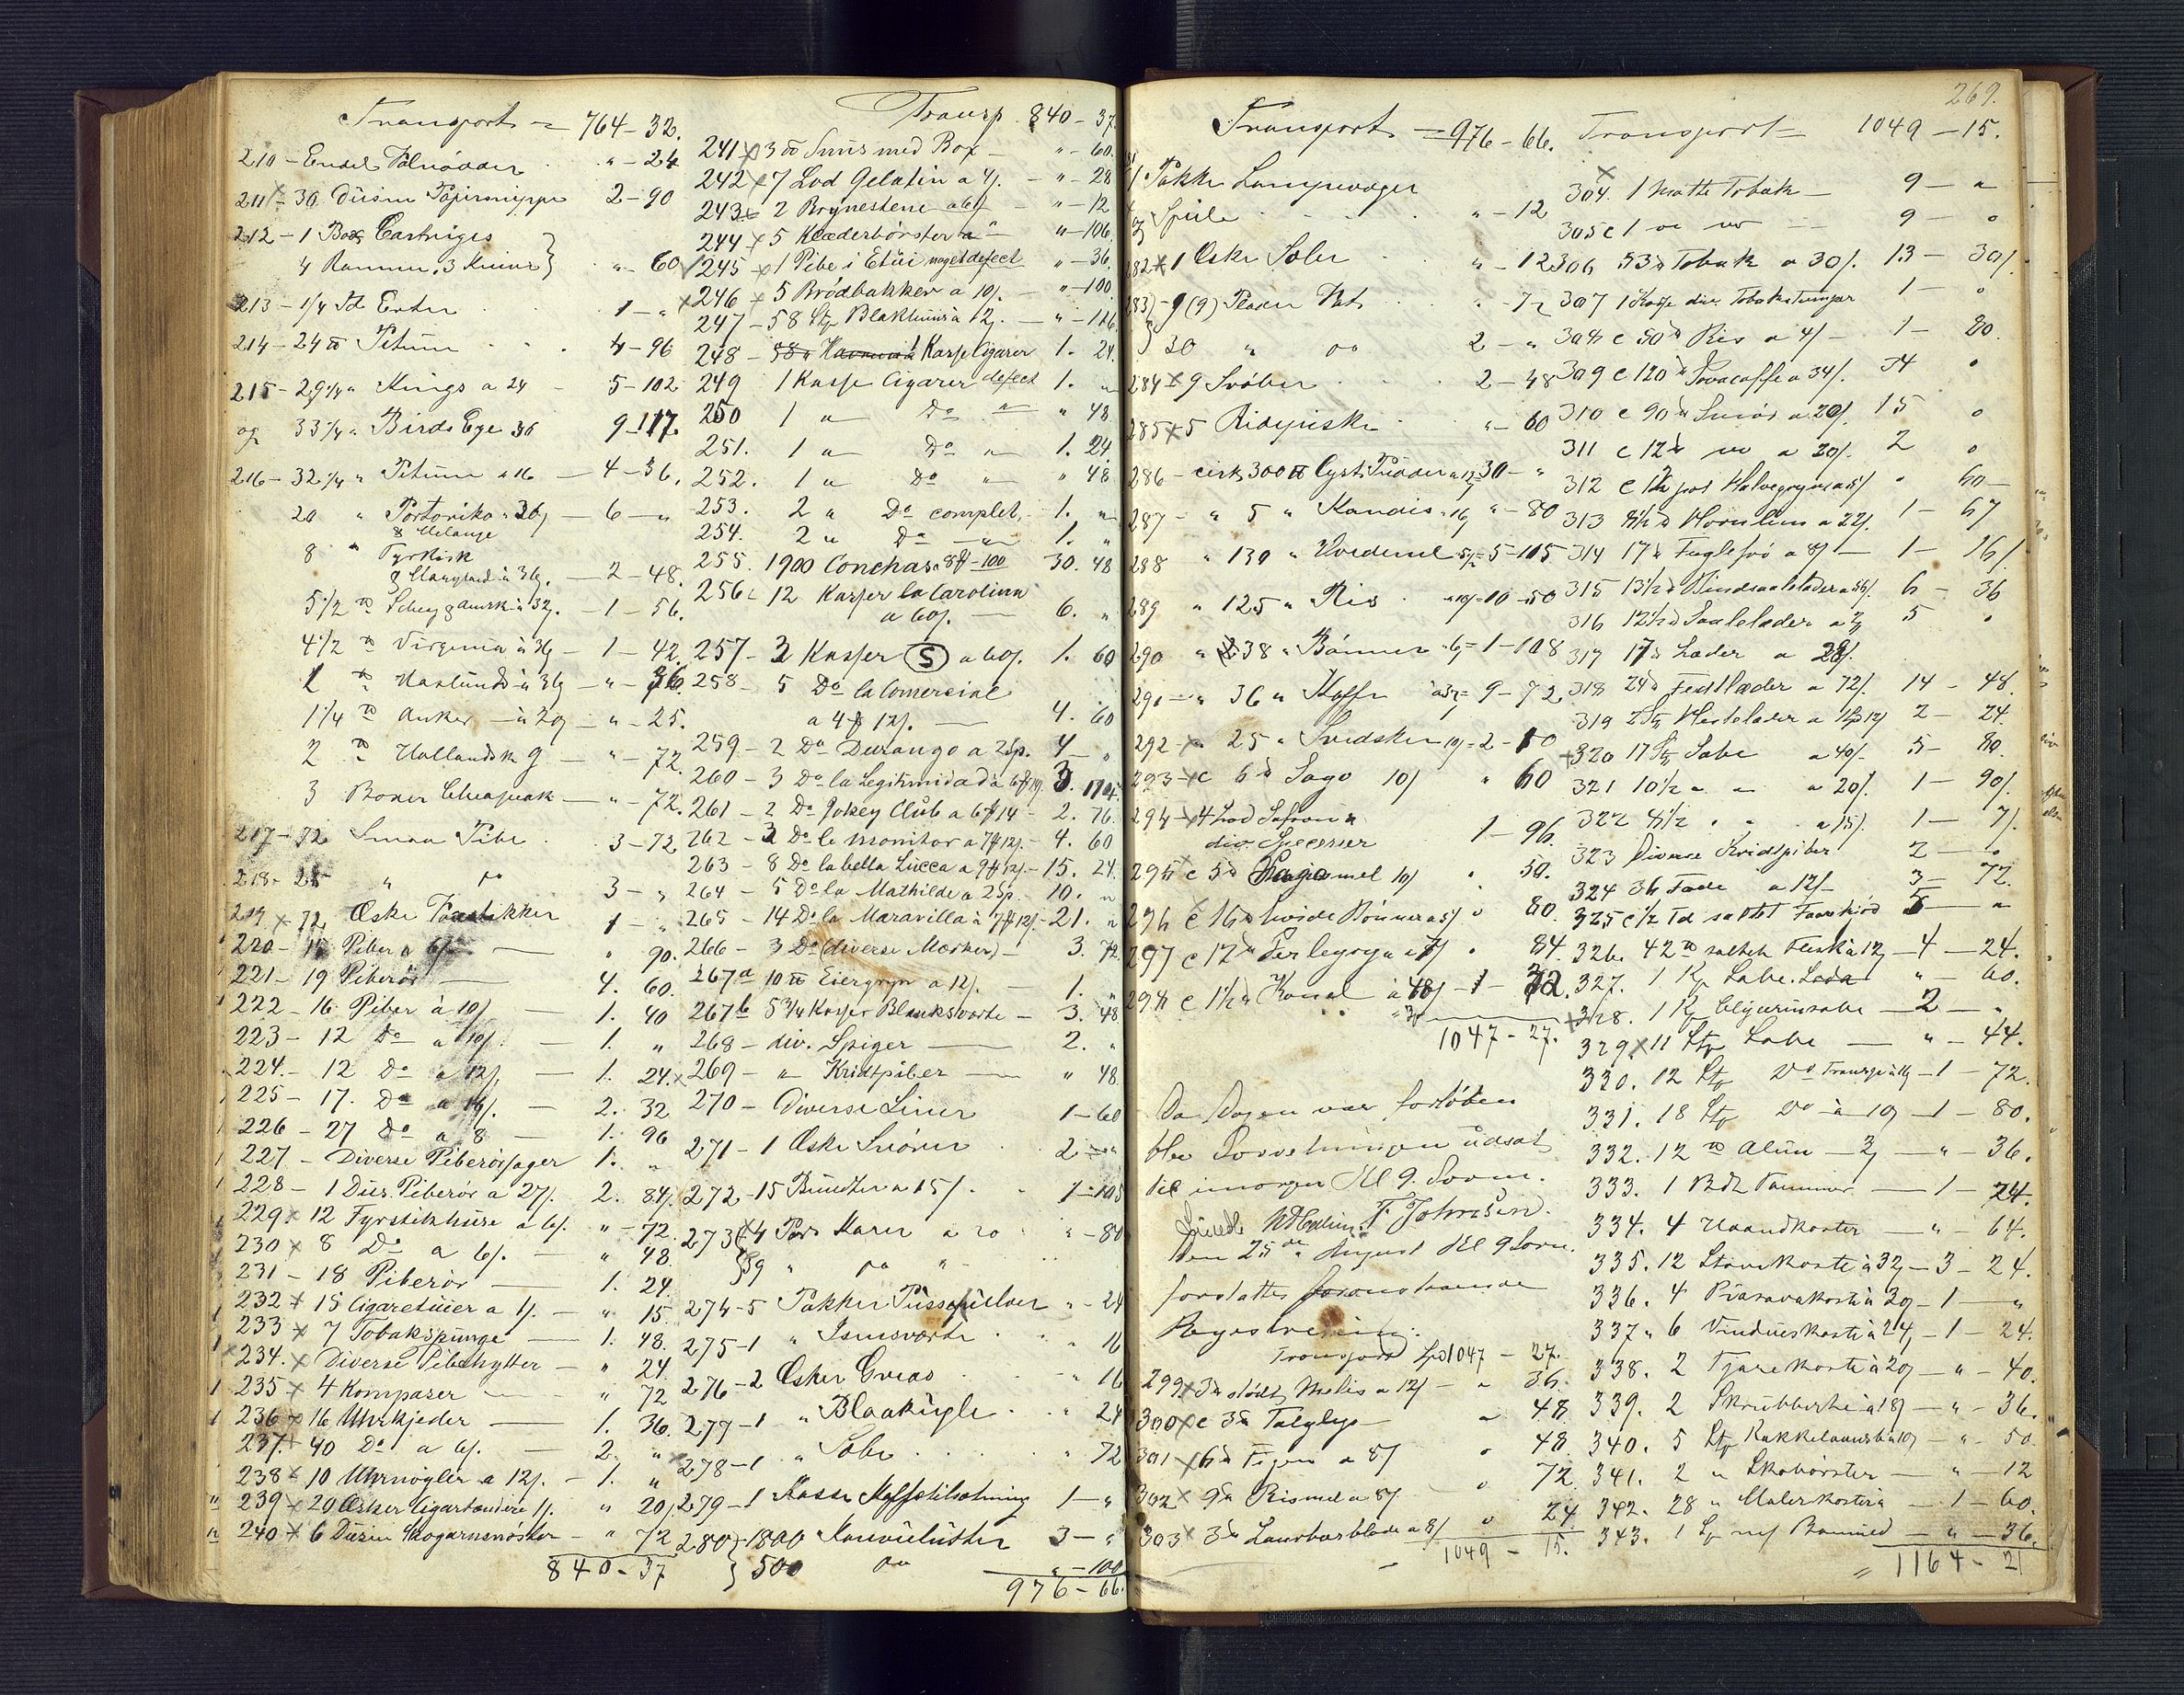 Transport = 764-32.
210 - Endel
211 - 30 Dusin Papirsnipper 2-90
212 - 1 Box Cartriges
4 Rammer, 3 Knive } " - 60
213 - 1/4 Td Erter 1 - "
214 - 24 ℔ Petum 4-96
215 - 29 1/4 " Kings a 24 5-102
og 33 1/4 " Birds Eye 36 9-117.
216 - 32 1/4 " Petum a 16 - 4-36.
20 " Portoriko a 36 - 6 - "
8 Melange
8 " Tyrkisk
8 Maryland a 36. - 2-48.
5 1/2 ℔ - 1-56.
4 1/2 ℔ Virginia à 36 - 1-42.
1 1/4 ℔ Anker - à 20 - " - 25.
2 ℔ Hollandsk - " - 72.
3 Boxer - " - 72.
217 - 72 Smaa Piber 3-72
218 - 3 - "
219 x 72 Æske Fyrstikker 1 - "
220 - 15 Piber a 6/. " 90.
221 - 19 Piberör 4. 60.
222 - 16 Piber à 10/ 1. 40
223 - 12 Do a 10/. 1. "
224. - 12 Do a 12/. 1. 24.
225 - 17. Do 2. 32
226 - 27 Do a 8 - 1. 96
227 - Diverse Piberörsager 1. "
228 - 1 Dus. Piberör a 27/. 2. 84.
229 x 12 Fyrstikhuse a 6/. " - 72.
230 x 8 Do a 6/. " 48.
231 - 18 Piberör 1. 24.
232 x 15 Cigaretuier a 1/. " 15.
233 x 7 Tobakspunge 1. 48.
234. x Diverse Pibehytter - " 24.
235 x 4 Kompasser " 72
236 x 16 Uhrkjeder 1. 36.
237 - 40 Do a 6/. 2. "
238 x 10 Uhrnögler a 12/. - 1. "
239 x 20 Æsker Cigartændere 1/. " 20/.
240 x 6 Dusin - " 72
840-37
Transp. 840-37.
241 x 3 ℔ Snus med Box - " - 60.
242 x 7 Lod Gelatin a 4/. - " - 28
243 x 2 Brynestene a 6/ - " - 12
244 x 5 Klædebörster a " - 106.
245 x 1 Pibe i Etui noget defect " - 36.
246 x 5 Brödbakker a 10/. " - 100
247 - 58 Stk Blækhuus à 2/. - " - 116
248 - 1 Kasse Cigarer 1. 24.
249 1 Kasse Cigarer defect 1. "
250 1 " Do " " 48
251. 1 " Do " 1. 24
252. 1 " Do " " 48
253. 2 " Do complet, 1. "
254. 2 " Do " 1. "
255. 1900 Conchas a 8 - 100 30. 48
256 12 Kasser la Carolina
a 60/. 6. "
257 - 2 Kasser S a 60/. 1. 60
258 - 5 Do la Comercial
a 4 12/. 4. 60
259 - 2 Do Durango a 2 Sp. 4 - "
260 - 3 Do la Legitimidad a 3. 114.
261 - 2 Do Jokey Club a 6 14 - 2. 76.
262 - 3 Do la Monitor a 7 12/. - 4. 60
263 - 8 Do la bella Lucca a 9 12/. - 15. 24.
264 - 5 Do la Mathilde a 2 Sp. - 10. "
265 - 14 Do la Maravilla à 7 12/. - 21. "
266 - 3 Do (diverse Mærker) - 3. 72.
267a 10 ℔ Eiergryn a 12/. - 1. "
267b 5 3/4 Kasser Blanksværte - 3. 48
268 - div. Spiger 2. "
269 - " Kridtpiber " 48
270 - Diverse Liner 1-60
271 - 1 Æske Snörer 2 - "
272 - 15 Bundter a 15/. 1-105
273 { 4 Par Karer a 20 " - 80
59 " do "
274 - 5 Pakker Pudsepulver " - 24
275 - 1 " Isensværte " 16
276 - 2 Æsker " 16
277 - 1 " Blaakugle " 24
278 - 1 " Sæbe " 72
279 - 1 Kasse Kaffetilsætning 1 - "
280 } 1800 3 - "
} 500 do " - 100
976-66.
269.
Transport = 976-66.
Pakke Lampevæger
Speile " - 12
282 x 1 Æske Sæbe " - 12
2 - "
284 x 9 Svöber 2-48
285 x 5 Ridepiske " - 60
286 - cirk 300 ℔ 30 - "
287 - " 5 " Kandis " 16 " - 80
288 " 130 " Hvedemel 5 = 5-105
289 " 125 " Ris 10-50
290 " 38 " Bönner 1-108
290 - " 36 " Kaffe 9-72.
292 - x 25 " Svedsker 10/ = 2-
293 - x c 6 ℔ Sago 10/ " 60
294 - x 4 Lod Safran &
div. Specerier 1-96.
295 x c 5 ℔ 10/ " 50.
296 c 16 ℔ hvide Bönner a 5/ " 80.
297 c 12 ℔ Perlegryn a 7/ " 84.
1047-27.
Da Dagen var forlöben
blev Forretningen udsat
til imorgen Kl 9. Form.
F Johnsen.
Den 25de August Kl 9 Form.
fortsattes foranstaaende
Registrering:
Transport Spd 1047 - 27.
299 x 3 ℔ stödt Melis a 12/ - " 36.
300 x c 3 ℔ Talglys - " 48
301 x 6 ℔ Figen a 8/ " 48.
302 x 9 ℔ Rismel a 8/. " 72.
303 x 3 ℔ Laurbærblade a 8/ " 24.
1049-15.
Transport = 1049-15.
304. 1 Matte Tobak - 9 - "
305 c 1 do do - 9 - "
306 53 ℔ Tobak a 30/. 13 - 30/.
307 1 Kasse div. Tobakstumper 1 - "
308 c 50 ℔ Ris a 4/ - 1 - 80.
309 c 120 ℔ Javacaffe a 34/. 34 "
310 c 90 ℔ Smör a 20/. 15 "
311 c 12 ℔ do a 20/. 2 "
312 c 12 pot Halvegryn a 5/ " 60 -
313 8 1/2 ℔ Hornlim a 22/. 1 - 67
314 17 ℔ Fuglefrö a 8/ - 1 - 16/.
315 13 1/2 ℔ Bindsaalelæder a 56/. 6 - 36
316 12 1/2 ℔ Saalelæder 5 "
317 17 ℔ Læder a 28/.
318 24 ℔ Fedtlæder a 72/. 14 - 48.
319 2 Stk Hestelæder a 1 Sp 12/ 2 - 24.
320 17 Stg Sæbe a 40/- 5 - 80.
321 10 1/2 " " a 20/. 1 - 90/.
322 8 1/2 " " a 15/. 1 - 7/.
323 Diverse Kridtpiber 2 - "
324 36 Fade a 12/- 3 - 72.
325 c 1/2 Td saltet Faarekjöd 5 - "
326. 42 ℔ saltet Flesk à 12 - 4 - 24.
327. 1 K Sæbe. Soda " - 60.
328. 1 K Glycerinsæbe - 2 - "
329. x 11 Stk Sæbe - " - 44.
330. 12 Stk Do Transp à 16 - 1 - 72.
331. 18 Stk Do à 10 - 1 - 80.
332. 12 ℔ Alun - 3 - " - 36.
333. 1 Bdt - 1 - 24.
334. 4 Haandkoster - " - 64.
335. 12 Stövekoste à 32 - 3 - 24.
336. 4 Piasavakoste à 30 - 1 - "
337. 6 Vindueskoste à 24 - 1 - 24.
338. 2 Tjærekoste à 20 - " - 40.
339. 2 Skrubberkoste à 18 - " - 36.
340. 5 Stk Kakkelovnsbörste à 10 - " - 50.
341. 2 " Skobörster - " - 12
342. 28 " Malerkoster a - 1 - 60.
343. - " - 36.
= 1164-21